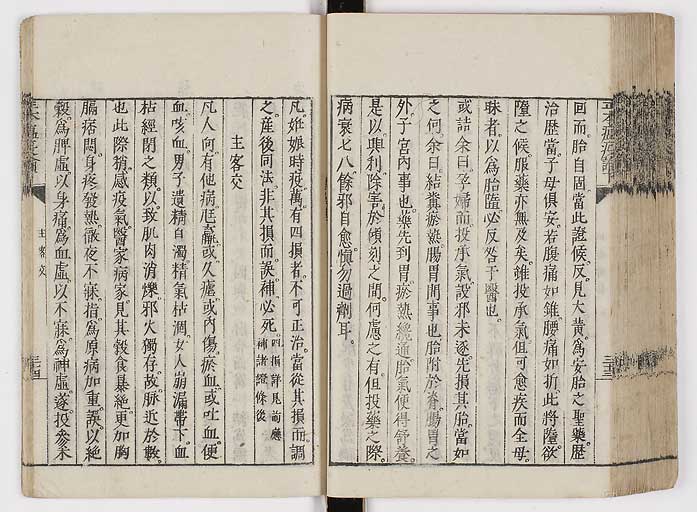 回而胎自固當此證候反見大黃爲安胎之聖藥歷
治歷當子母俱安若腹痛如錐腰痛如折此將墮欲
墮之候服藥亦無及矣雖投承氣但可愈疾而全母
昧者以爲胎墮必反咎于醫也
或詰余曰孕婦而投承氣設邪未逐先損其胎當如
之何余曰結糞瘀熱腸胃間事也胎附於脊腸胃之
外子宮内事也藥先到胃瘀熱纔通胎氣便得舒養
是以興利除害於頃刻之間何慮之有但投藥之際
病衰七八餘邪自愈慎勿過劑耳
凡妊娠時疫萬有四損者不可正治當從其損而調
之產後同法非其損而誤補必死 四損詳見前應
補諸證條後
主客交
凡人向有他病尫羸或久瘧或内傷瘀血或吐血便
血咳血男子遺精白濁精氣枯涸女人崩漏帶下血
枯經閉之類以致肌肉消爍邪火獨存故脉近於數
也此際稍感疫氣醫家病家見其穀食暴絶更加胸
膈痞悶身疼發熱徹夜不寐指爲原病加重誤以絶
穀爲脾虛以身痛爲血虛以不寐爲神虛遂投參朮
主客交